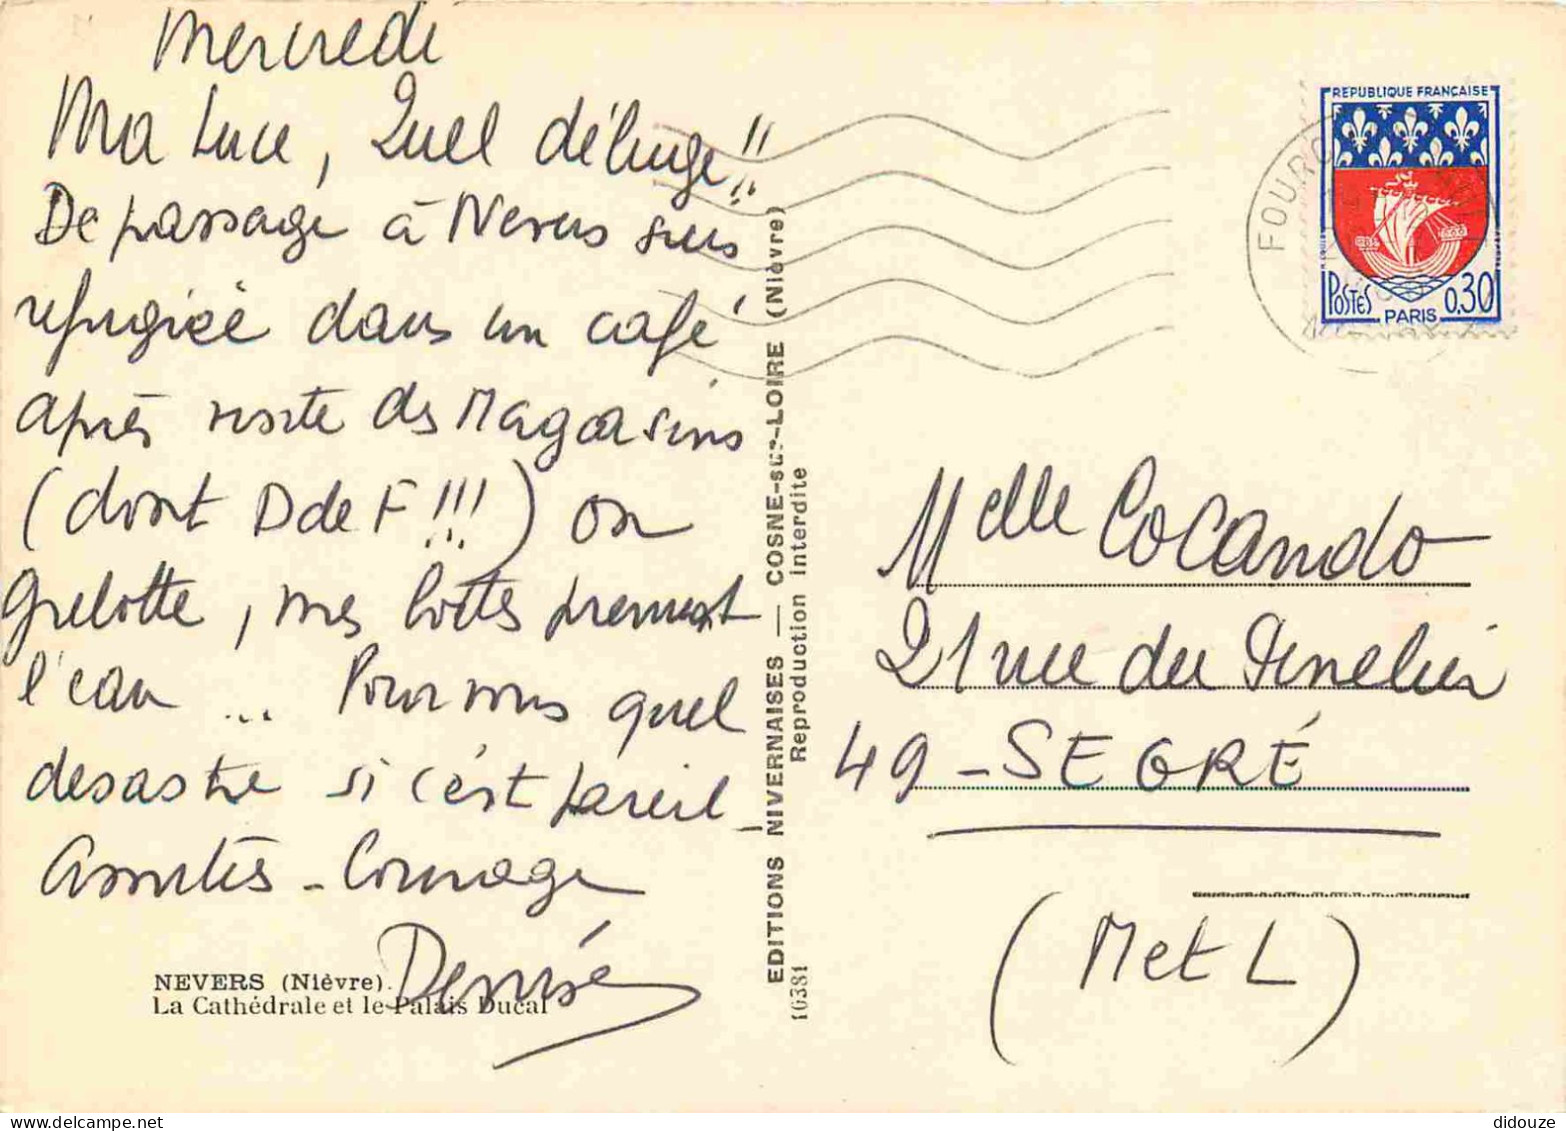 Mercredi
Ma Luce, Quel déluge!!
De passage à Nevers suis
refugiée dans un café
après visite des Magasins
(dont D de F!!!) on
grelotte, mes bottes prennent
l'eau ... Pour vous quel
desastre si c'est pareil_
Amitiés - Courage
Denise
NEVERS (Nièvre).
La Cathédrale et le Palais Ducal
EDITIONS NIVERNAISES — COSNE-sur-LOIRE (Nièvre)
Reproduction interdite
10381
REPUBLIQUE FRANÇAISE
POSTES
0,30
PARIS
Melle Cocando
21 rue du
49 - SEGRÉ
(M et L)
didouze